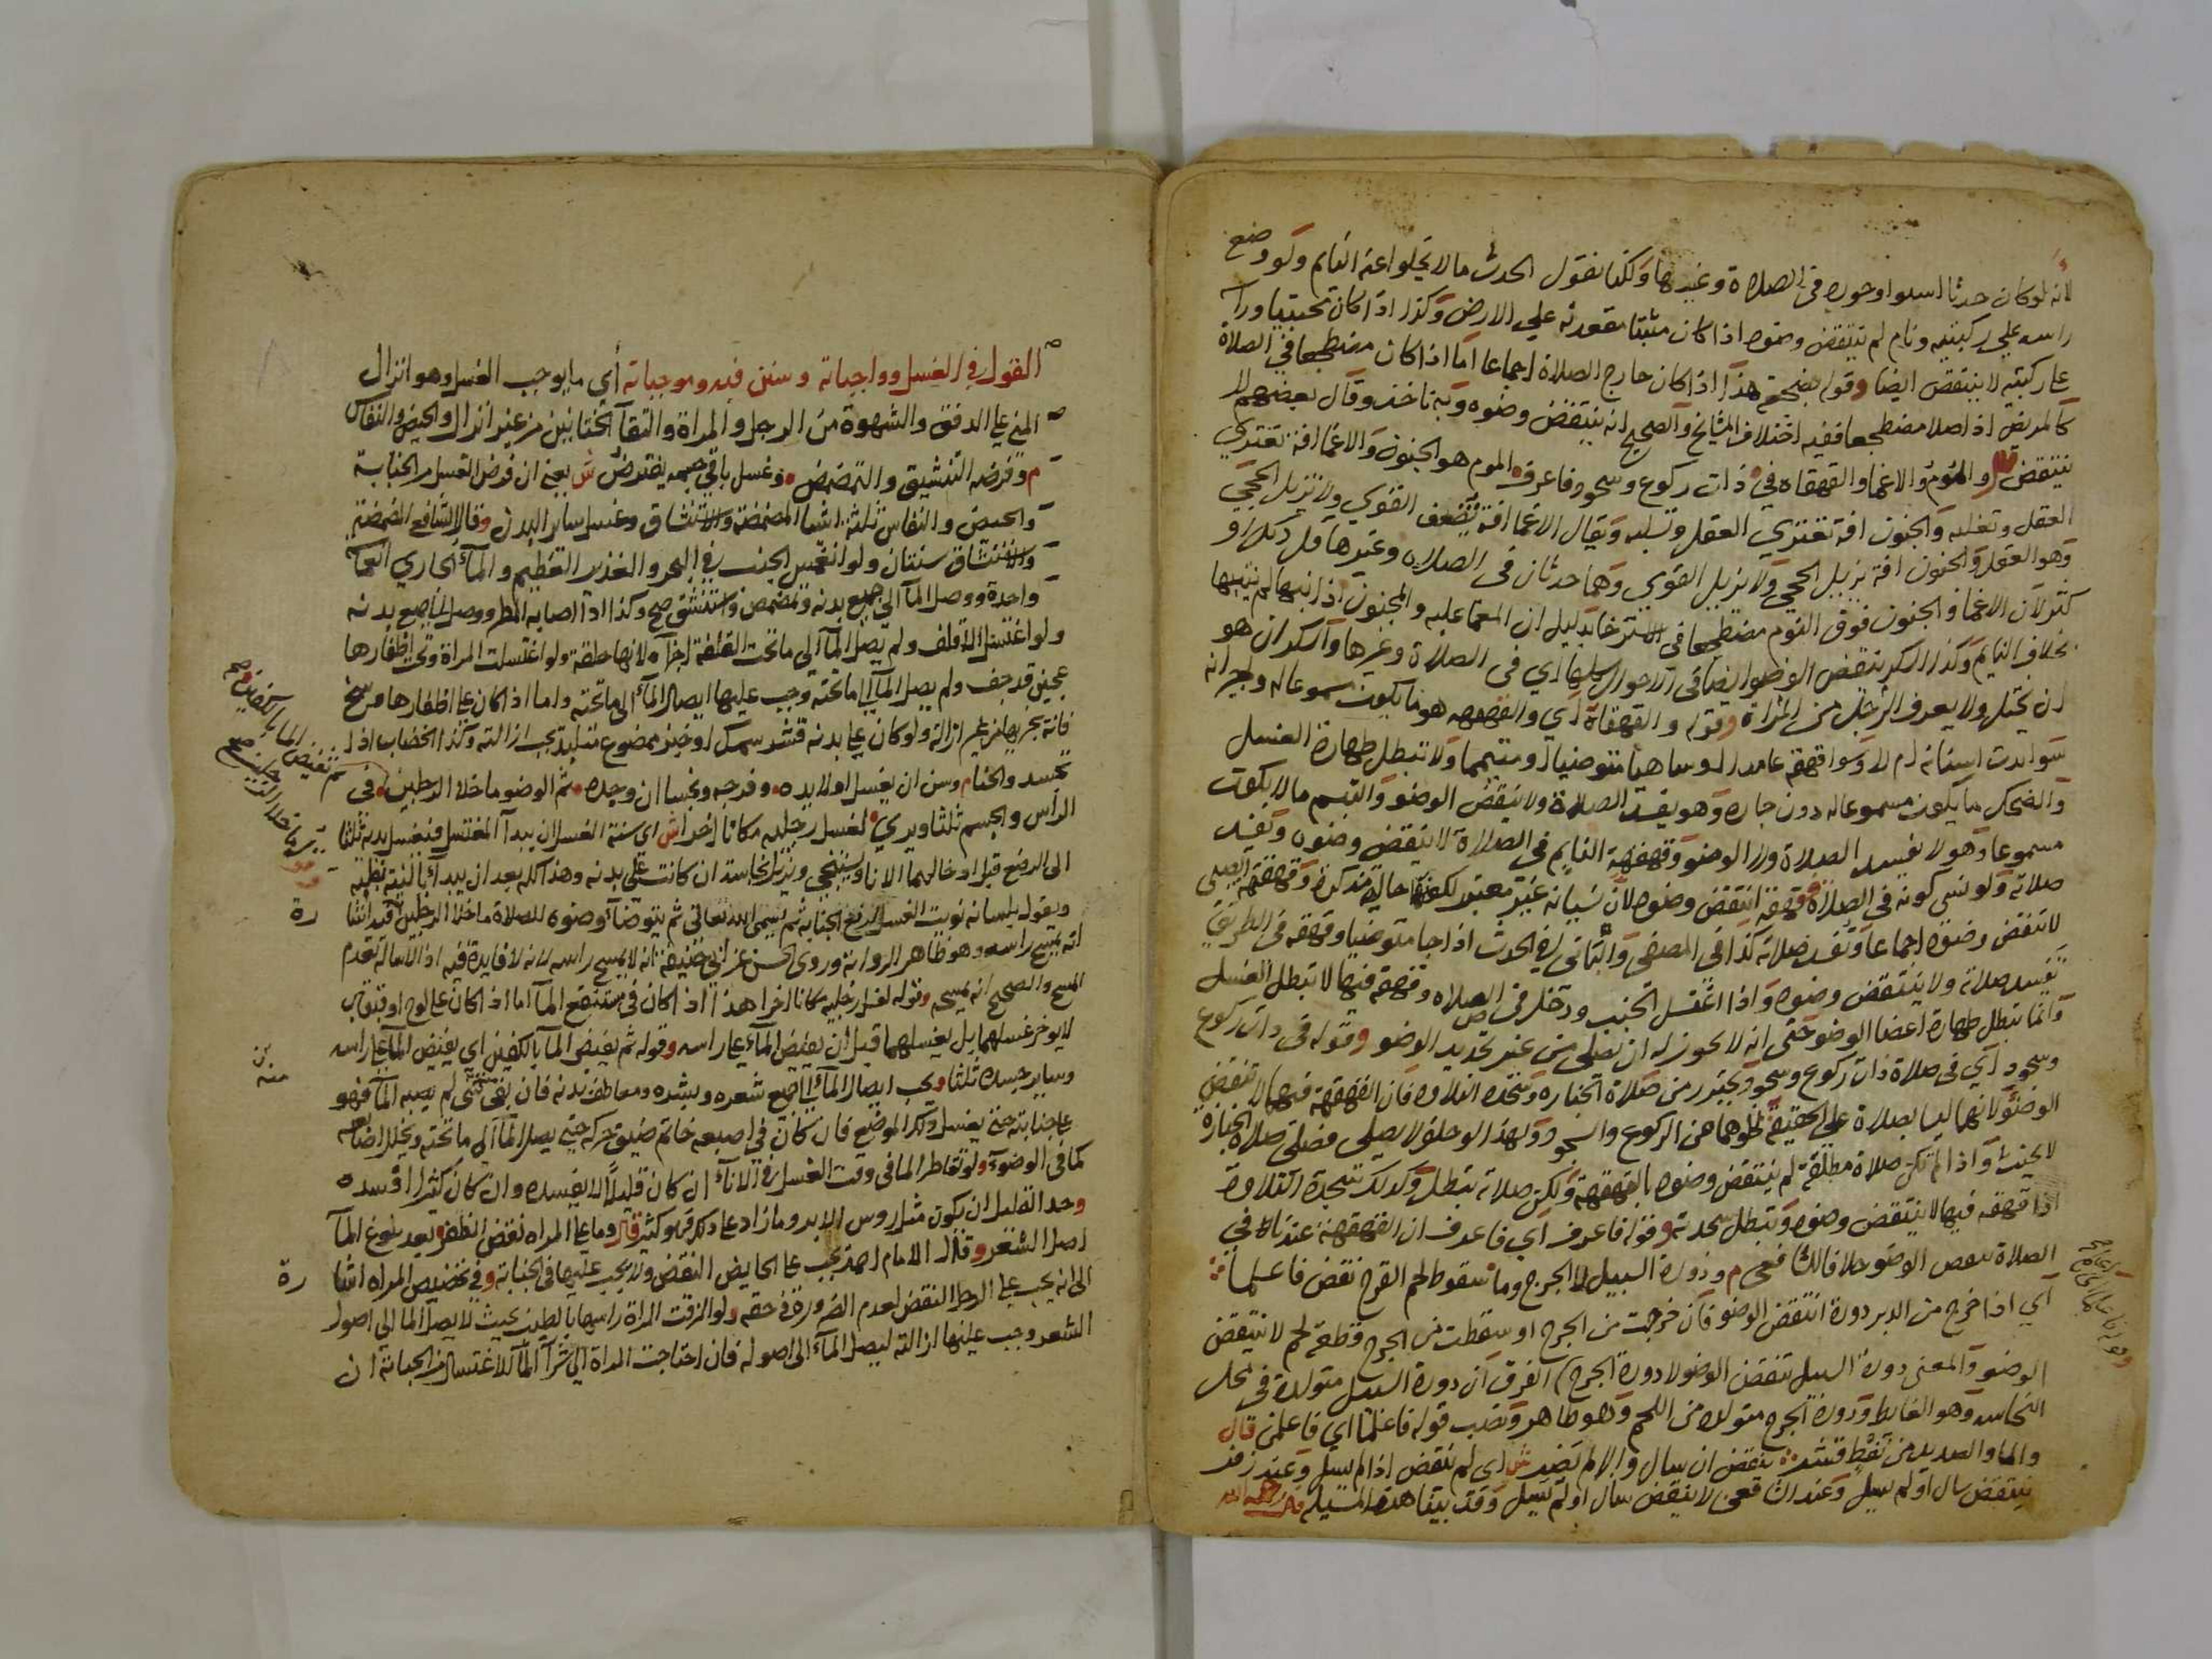 لانه لو كان حدثا لستوا وجوده في الصلاة وغيرها ولكنا نقول الحدث ما لا يخلوا عنه النايم ولو وضع
راسه علي ركبتيه ونام لم ينتقض وضوه اذا كان مثبتا مقعدته علي الارض وكذا اذا كان محتبيا وراسه
علي ركبتيه لا ينتقض ايضا وقوله بضجعة هذا اذا كان خارج الصلاة اجماعا اما اذا كان مضطجعا في الصلاة
كالمريض اذا صلا مضطجعا ففيه اختلاف المشايخ والصحيح انه ينتقض وضوه وبه ناخذ وقال بعضهم لا
ينتقض والموم والاغما والقهقاه في ذات ركوع وسجود فاعرف الموم هو الجنون والاغما افة تعتري
العقل وتغلبه والجنون افة تعتري العقل وتسلبه ويقال الاغما افة تضعف القوي ولا تزيل الحجي
وهو العقل والجنون افة تزيل الحجي ولا يزيل القوي وهما حدثان في الصلاه وغيرها قل ذلك او
كثر لان الاغما والجنون فوق النوم مضطجعا في الاسترخا بدليل ان المغما عليه والمجنون اذا نبها لم ينتبها
بخلاف النايم وكذا السكر ينقض الوضو ايضا في الاحوال كلها اي في الصلاة وغيرها والسكران هو
ان يختل ولا يعرف الرجل من المراة وقوله والقهقاة اي والقهقهه هو ما يكون مسموعا له ولجيرانه
سوا بدت اسنانه ام لا وسوا قهقه عامدا او ساهيا متوضيا او متيمما ولا تبطل طهارة الغسل
والضحك ما يكون مسموعا له دون جاره وهو يفسد الصلاة ولا ينقض الوضو والتبسم ما لا يكون
مسموعا وهو لا يفسد الصلاة ولا الوضو وقهقهة النايم في الصلاة لا ينتقض وضوه وتفسد
صلاته ولو نسي كونه في الصلاة فقهقه انتقض وضوه لان نسيانه غير معتبر لكونها حالة مذكرة وقهقهة الصبي
لا تنقض وضوه اجماعا وتفسد صلاته كذا في المصفي والثاني في الحدث اذا جا متوضيا وقهقه في الطريق
تفسد صلاته ولا ينتقض وضوه واذا اغتسل الجنب ودخل في الصلاه وقهقه فيها لا تبطل الغسل
وانما تبطل طهارة اعضا الوضو حتي انه لا يجوز له ان يصلي من غير تجديد الوضو وقوله في ذات ركوع
وسجود اي في صلاة ذات ركوع وسجود يحترز من صلاة الجنازه وسجدة التلاوه فان القهقهة فيهما لا تنقض
الوضو لانهما ليسا بصلاة علي الحقيقة لخلوهما من الركوع والسجود ولهذا لو حلف لا يصلي فصلي صلاة الجنازه
لا يحنث واذا لم تكن صلاة مطلقة لم ينتقض وضوه بالقهقهة ولكن صلاته تبطل وكذلك سجدة التلاوة
اذا قهقه فيها لا ينتقض وضوه وتبطل سجدته وقوله فاعرف اي فاعرف ان القهقهة عندنا في
الصلاة تنقض الوضو خلافا للشافعي م ودودة السبيل لا الجرح وما سقوط لحم القرح نقض فاعلما
اي اذا خرج من الدبر دودة انتقض الوضو فان خرجت من الجرح او سقطت من الجرح قطعة لحم لا ينتقض
الوضو والمعني دودة السبيل تنقض الوضو لا دودة الجرح الفرق ان دودة السبيل متولدة في محل
النجاسه وهو الغايط ودودة الجرح متولده من اللحم وهو طاهر ونصب قوله فاعلما اي فاعلمن قال
والما والصديد من نفط قشر ينقض ان سال والا لم يضر ش اي لم ينقض اذا لم يسل وعند زفر
ينتقض سال او لم يسل وعند الشافعي لا ينقض سال او لم يسل وقد بينا هذه المسيله
القول في الغسل وواجباته وسنن فيه وموجباته أي ما يوجب الغسل وهو انزال
المني علي الدفق والشهوة من الرجل والمراة والتقآ الختانين من غير انزال والحيض والنفاس
م وفرضه التنشيق والتمضمض وغسل باقي جسمه يفترض ش يعني ان فرض الغسل من الجنابة
والحيض والنفاس ثلثة اشيا المضمضة والاستنشاق وغسل ساير البدن وقال الشافعي المضمضة
والاستنشاق سنتان ولو انغمس الجنب في البحر والغدير العظيم والمآ الجاري انغماسة
واحدة ووصل المآ الي جميع بدنه وتمضمض واستنشق صح وكذا اذا اصابه المطر ووصل الي جميع بدنه
ولو اغتسل الاقلف ولم يصل المآ الي ما تحت القلفة اجزآه لانها خلقة ولو اغتسلت المراة وتحت اظفارها
عجين قد جف ولم يصل المآ الي ما تحته وجب عليها ايصال المآ الي ما تحته واما اذا كان علي اظفارها وسخ
فانه يجزيها من غير ازالة ولو كان علي بدنه قشر سمك او خبز ممضوغ متلبد يجب ازالته وكذا الخضاب اذا
تجسد والحنا م وسن ان يغسل اولا يده وفرجه ونجسا ان وجده ثم الوضو ما خلا الرجلين في
الرأس والجسم ثلثا ويدي لغسل رجليه مكانا اخرا ش اي سنة الغسل ان يبدآ المغتسل فيغسل يديه ثلثا
الي الرسغ قبل ادخالهما الانا ويستنجي ويزيل نجاسة ان كانت علي بدنه وهذا كله بعد ان يبدآ بالنية بقلبه
ويقول بلسانه نويت الغسل لرفع الجنابة ثم يسمي الله تعالي ثم يتوضآ وضوه للصلاة ما خلا الرجلين فيه اشارة
انه يمسح راسه وهو ظاهر الرواية وروي الحسن عن ابي حنيفة انه لا يمسح راسه لانه لا فايدة فيه اذ الاسالة تعدم
المسح والصحيح انه يمسحه وقوله لغسل رجليه مكانا اخرا هذا اذا كان في مستنقع المآ اما اذا كان علي لوح او قبقاب
لا يوخر غسلهما بل يغسلهما قبل ان يفيض المآء علي راسه وقوله ثم يفيض المآ بالكفين اي يفيض المآ علي راسه
وساير جسده ثلثا ويجب ايصال المآ الي جميع شعره وبشره ومعاطف بدنه فان بقي منه شي لم يصبه المآ فهو
علي جنابته حتي يغسل ذلك الموضع فان كان في اصبعه خاتم ضيق حركه حتي يصل المآ الي ما تحته ويخلل اصابعه
كما في الوضوء ولو تقاطر الما في وقت الغسل في الانآء ان كان قليلا لا يفسده وان كان كثيرا افسده
وحد القليل ان يكون مثل روس الابر وما زاد علي ذلك فهو كثير قال وما علي المراه نقض الظفر بعد بلوغ المآ
اصل الشعر وقال الامام احمد يجب علي الحايض النقض ولا يجب عليها في الجنابة وفي تخصيص المراه اشارة
الي انه يجب علي الرجل النقض لعدم الضرورة في حقه ولو الزقت المراة راسها بالطين بحيث لا يصل المآ الي اصول
الشعر وجب عليها ازالته ليصل المآء الي اصوله فان احتاجت المراة الي شرآ المآ للاغتسال من الجنابة ان